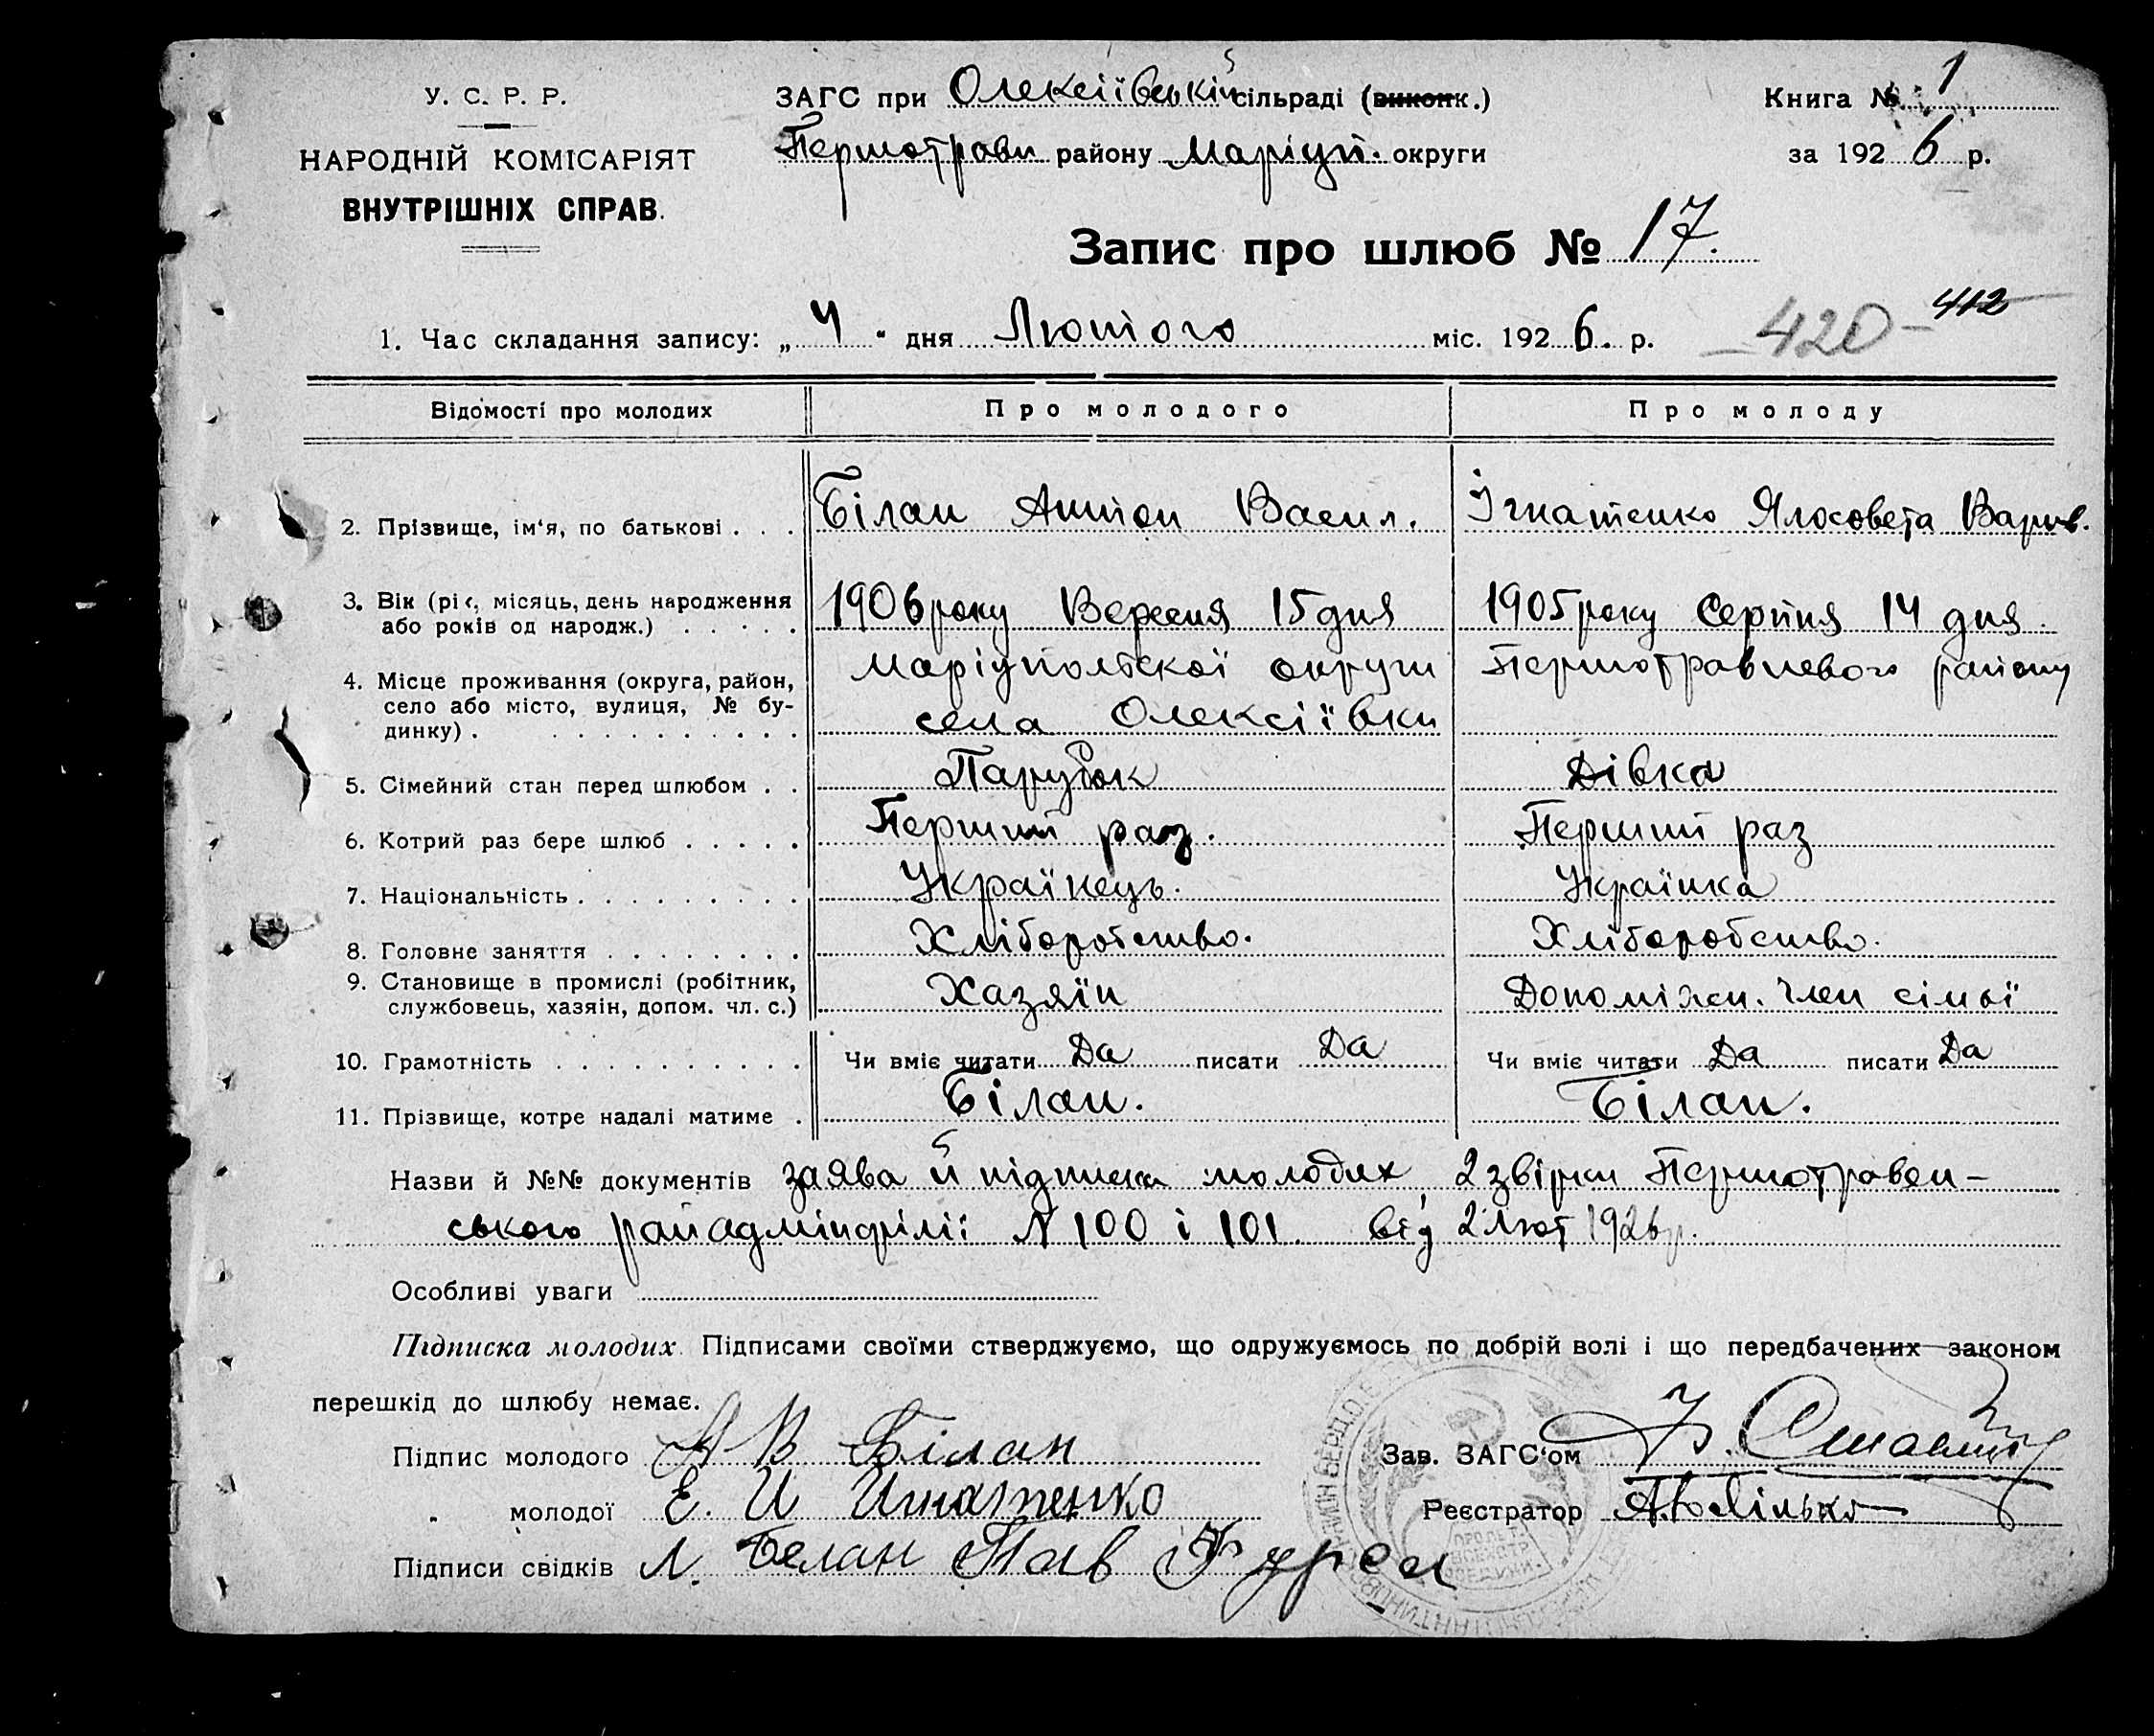 У. С. Р. Р.
НАРОДНІЙ КОМІСАРІЯТ
ВНУТРІШНІХ СПРАВ.
ЗАГС при Олексіївській сільраді (виконк.)
Першотравн району Маріуп. округи
Книга № 1
за 1926 р.
Запис про шлюб № 17.
412
1. Час складання запису: „4“ дня Лютого міс. 1926. р. —420—
Відомості про молодих Про молодого Про молоду
2. Прізвище, ім‘я, по батькові . . . Білан Антон Васил. Ігнатенко Ялосовета Варив.
3. Вік (рік, місяць, день народження 1906 року Вересня 15 дня 1905 року Серпня 14 дня.
або років од народж.) . . . . .
4. Місце проживання (округа, район, Маріупольської округи Першотравневого району
село або місто, вулиця, № бу- села Олексіївки
динку) . . . . . . . . . . .
5. Сімейний стан перед шлюбом . . Парубок Дівка
6. Котрий раз бере шлюб . . . . . Перший раз. Перший раз
7. Національність . . . . . . . . . Українець. Українка
8. Головне заняття . . . . . . . . Хліборобство. Хліборобство.
9. Становище в промислі (робітник, Хазяїн Допоміжн. член сімьї
службовець, хазяін, допом. чл. с.)
10. Грамотність . . . . . . . . . . Чи вміє читати Да писати Да Чи вміє читати Да писати Да
11. Прізвище, котре надалі матиме . Білан. Білан.
Назви й №№ документів заява й підписка молодих, 2 звірки Першотравен-
ського райадмінфілії N 100 і 101. від 2 Лют 1926 р.
Особливі уваги
Підписка молодих. Підписами своїми стверджуємо, що одружуємось по добрій волі і що передбачених законом
перешкід до шлюбу немає.
Підпис молодого А В Білан Зав. ЗАГС‘ом
„ молодої Е. И Игнатенко Реєстратор
Підписи свідків Л. Белан